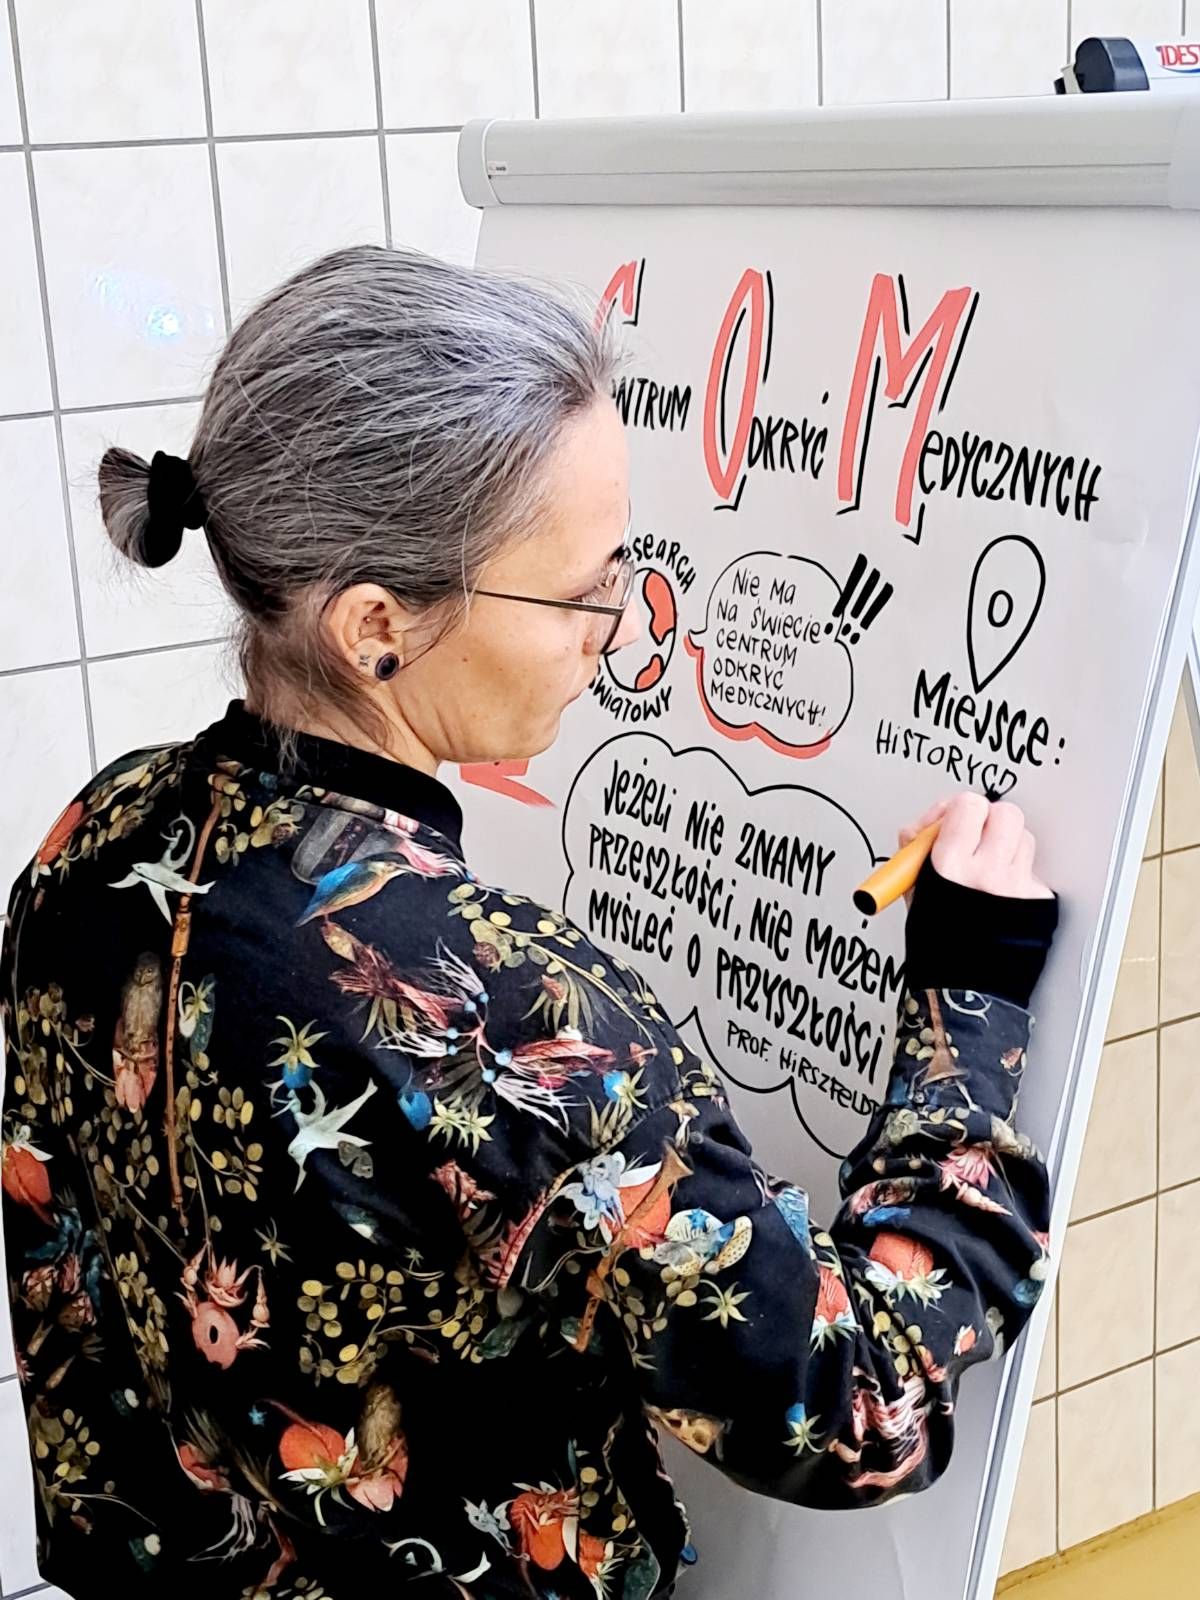 C O M
ENTRUM ODKRYĆ MEDYCZNYCH
RESEARCH
ŚWIATOWY
NIE MA
NA ŚWIECIE
CENTRUM
ODKRYĆ
MEDYCZNYCH!
!!!
MIEJSCE:
HISTORYCZ
JEŻELI NIE ZNAMY
PRZESZŁOŚCI, NIE MOŻEM
MYŚLEĆ O PRZYSZŁOŚCI
PROF. HIRSZFELD
IDES